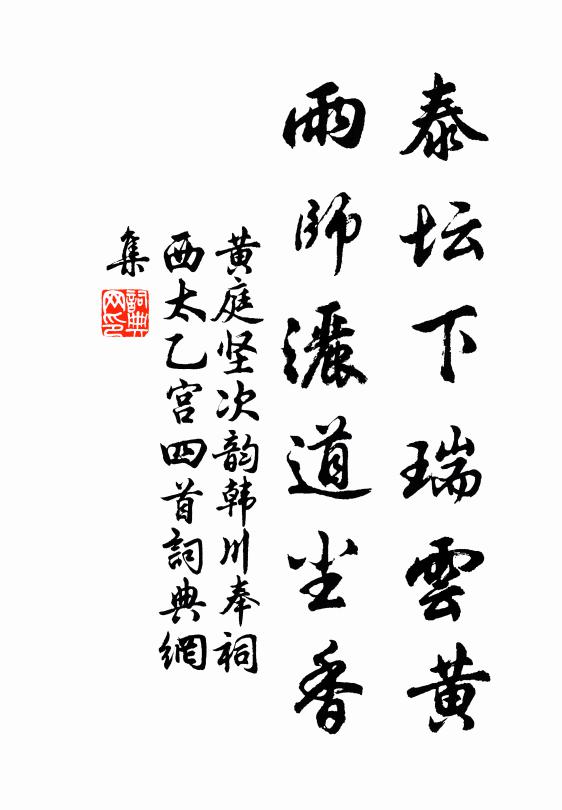 泰坛下瑞雲黄
雨師灑道尘香
黄庭坚次韵韩川奉祠
西太乙宫四首詞典網
集
詞典
网印